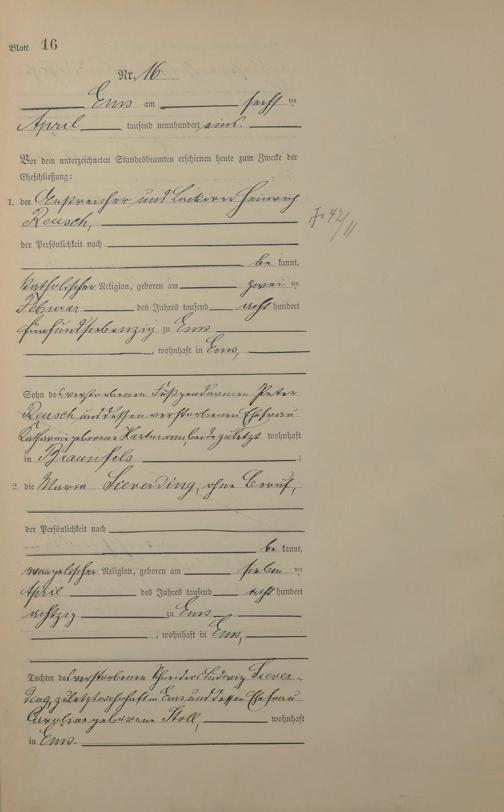 Blatt 16
Nr. 16
Ems am sechsten
April tausend neunhundert eins.
Vor dem unterzeichneten Standesbeamten erschienen heute zum Zwecke der
Eheschließung:
1. der Anstreicher und Lackirer Heinrich
Reusch,
der Persönlichkeit nach
bekannt,
katholischer Religion, geboren am zweiten
Februar des Jahres tausend achthundert
fünfundsiebenzig zu Ems
, wohnhaft in Ems,
Sohn des verstorbenen Fußgendarmen Peter
Reusch und dessen verstorbenen Ehefrau
Katharine geborene Hartmann, beide zuletzt wohnhaft
in Braunfels ;
2. die Maria Sieverding, ohne Beruf,
der Persönlichkeit nach
bekannt,
evangelischer Religion, geboren am sieben ten
April des Jahres tausend achthundert
achtzig zu Ems
, wohnhaft in Ems,
Tochter des verstorbenen Schneiders Ludwig Siever-
ding, zuletzt wohnhaft in Ems und dessen Ehefrau
Caroline geborene Stoll, wohnhaft
in Ems.